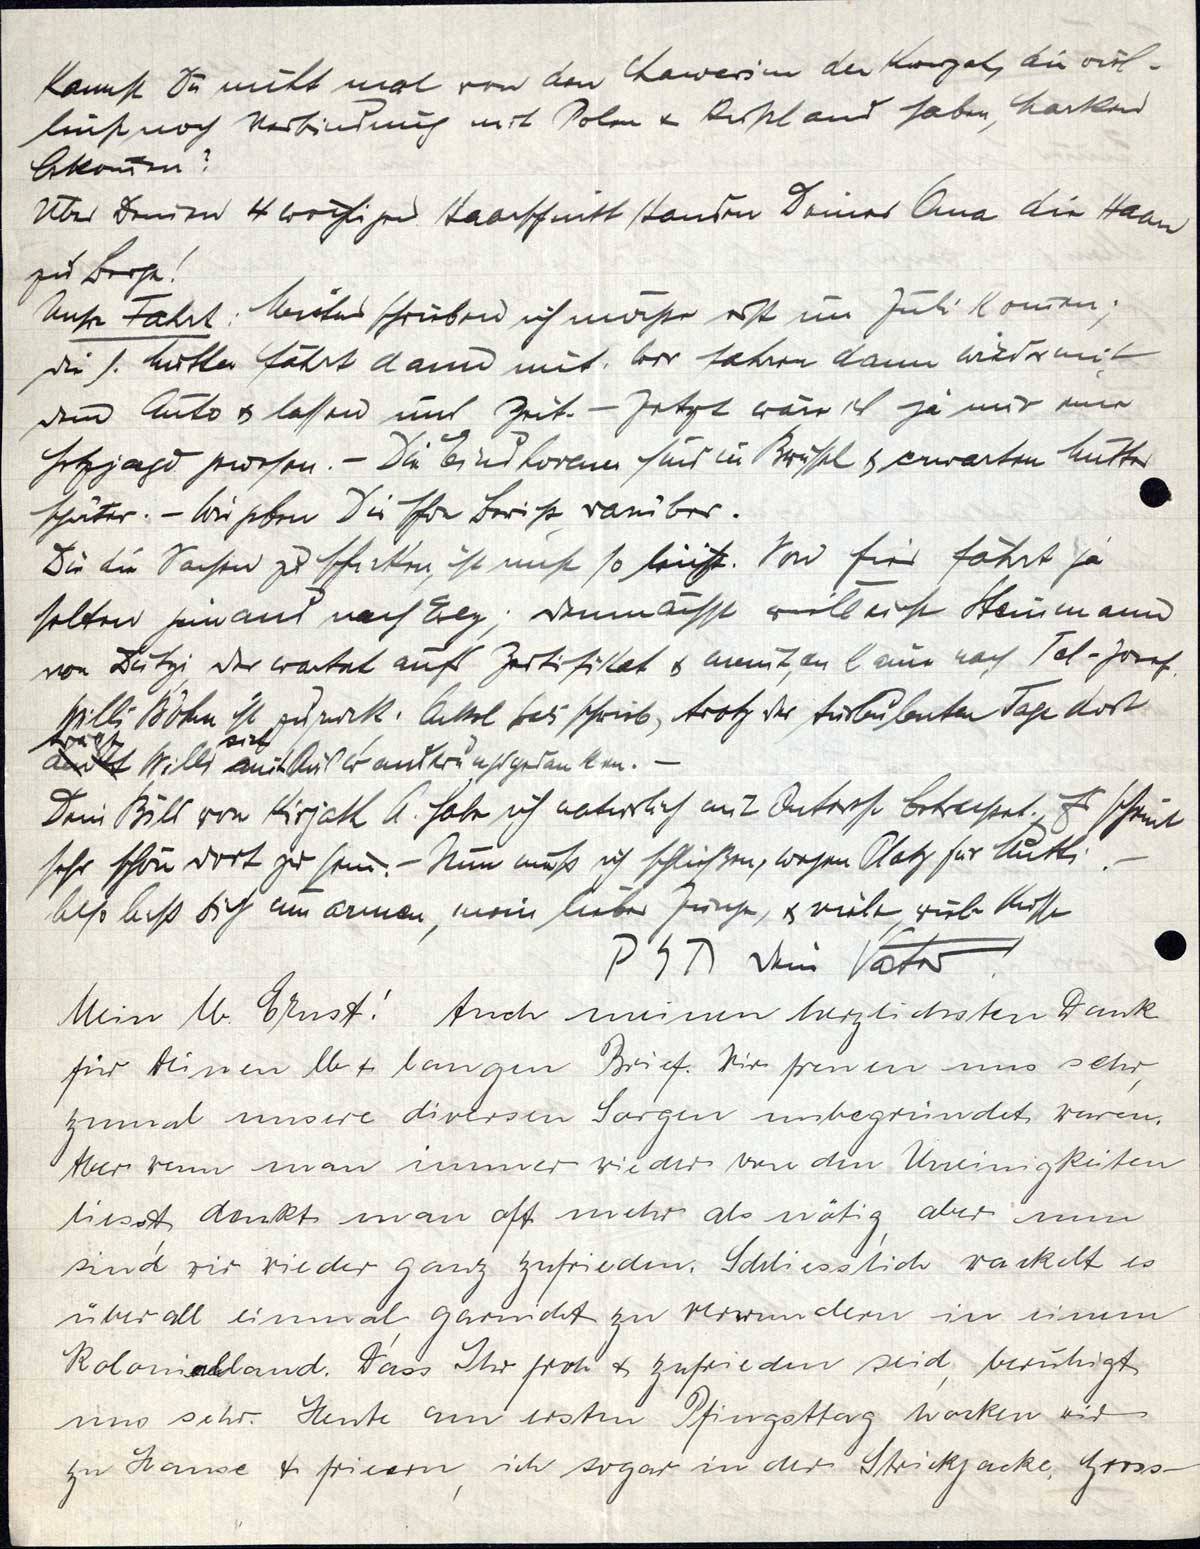 Kannst Du nicht mal von den Chawerim der Kwuzah, die viel-
leicht noch Verbindung mit Polen & Rußland haben, Marken
bekommen?
Über Deinen 4 wöchigen Haarschnitt standen Deiner Oma die Haare
zu Berge!
Unsre Fahrt: schrieben ich möchte erst im Juli kommen;
die l. Mutter fährt dann mit. Wir fahren dann wieder mit
dem Auto & lassen uns Zeit. – Jetzt wäre es ja nur eine
Hetzjagd gewesen. – Die Eindhovener sind in Brüssel & erwarten Mutter
später. – Wir geben Dir schon Bericht darüber.
Dir die Sachen zu schicken, ist nicht so leicht. Von hier fährt ja
selten jemand nach Erez; demnächst vielleicht Steinmann
von , der wartet aufs Zertifikat & nach Tel-Josef.
Willi Böhm ist zurück. Onkel schrieb, trotz der turbulenten Tage dort
trägt Willi sich mit Auswanderungsgedanken. –
Dein Bild von Kirjath A. habe ich natürlich mit Interesse betrachtet. Es scheint
sehr schön dort zu sein. – Nun muß ich schließen, wegen Platz für Mutti. –
Also laß Dich umarmen, mein lieber Junge, & viele, viele Küsse
Dein Vater!
Mein lb. Ernst! Auch meinen herzlichsten Dank
für Deinen lb. & langen Brief. Wir freuen uns sehr,
zumal unsere diversen Sorgen unbegründet waren.
Aber wenn man immer wieder von den Uneinigkeiten
liesst, denkt man oft mehr als nötig, aber nun
sind wir wieder ganz zufrieden. Schliesslich wackelt es
überall einmal, garnicht zu verwundern in einem
Kolonialland. Dass Ihr froh & zufrieden seid, beruhigt
uns sehr. Heute am ersten Pfingsttag hocken wir
zu Hause & frieren, ich sogar in der Strickjacke. Gross-